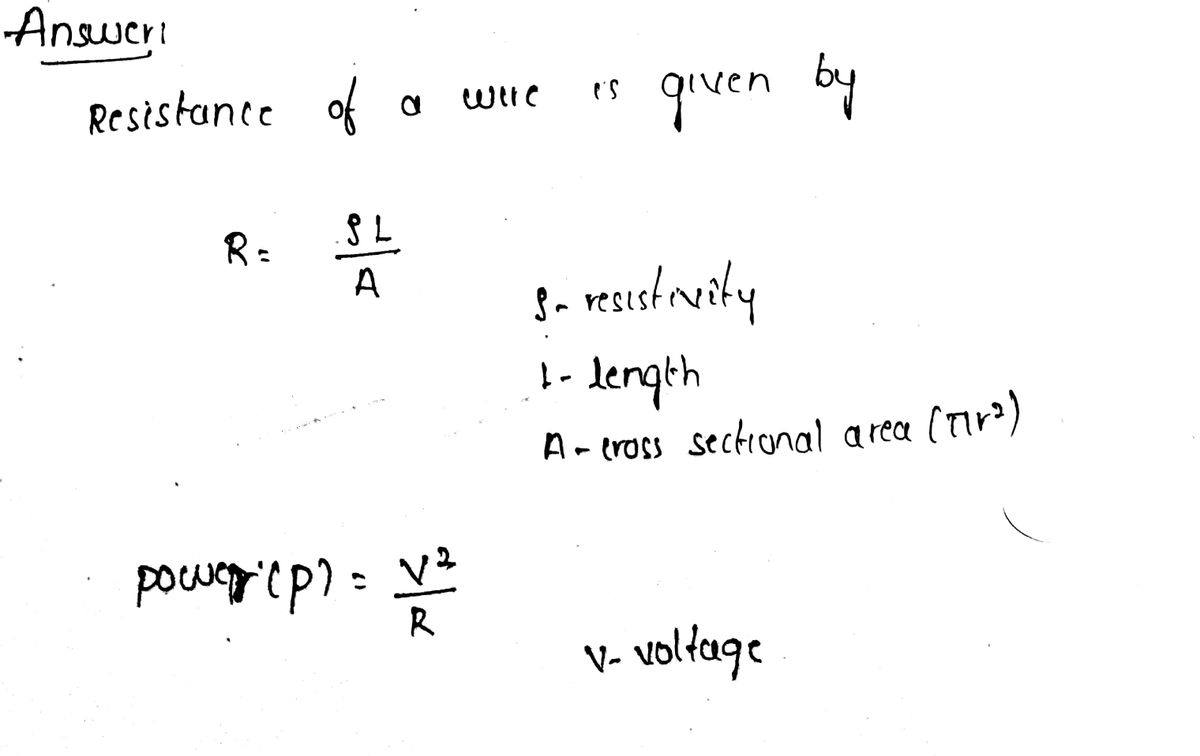 Answer:
Resistance of a wire is given by
R = ρL / A
ρ- resistivity
L- length
A- cross sectional area (πr²)
power (p) = V² / R
V- voltage